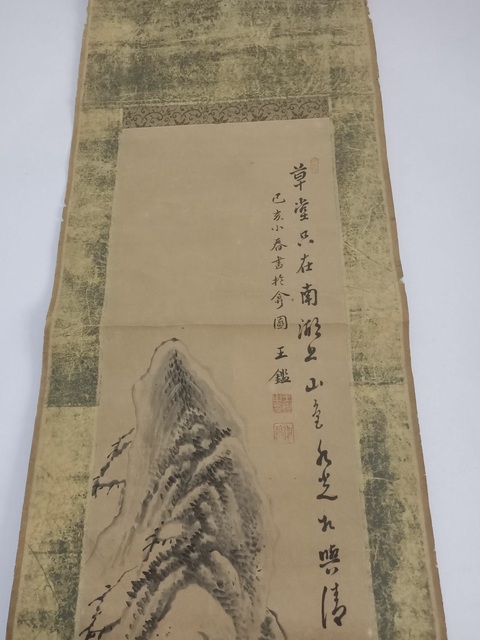 草堂只在南湖上山色水光相與清
己亥小春書於弇園
王鑑